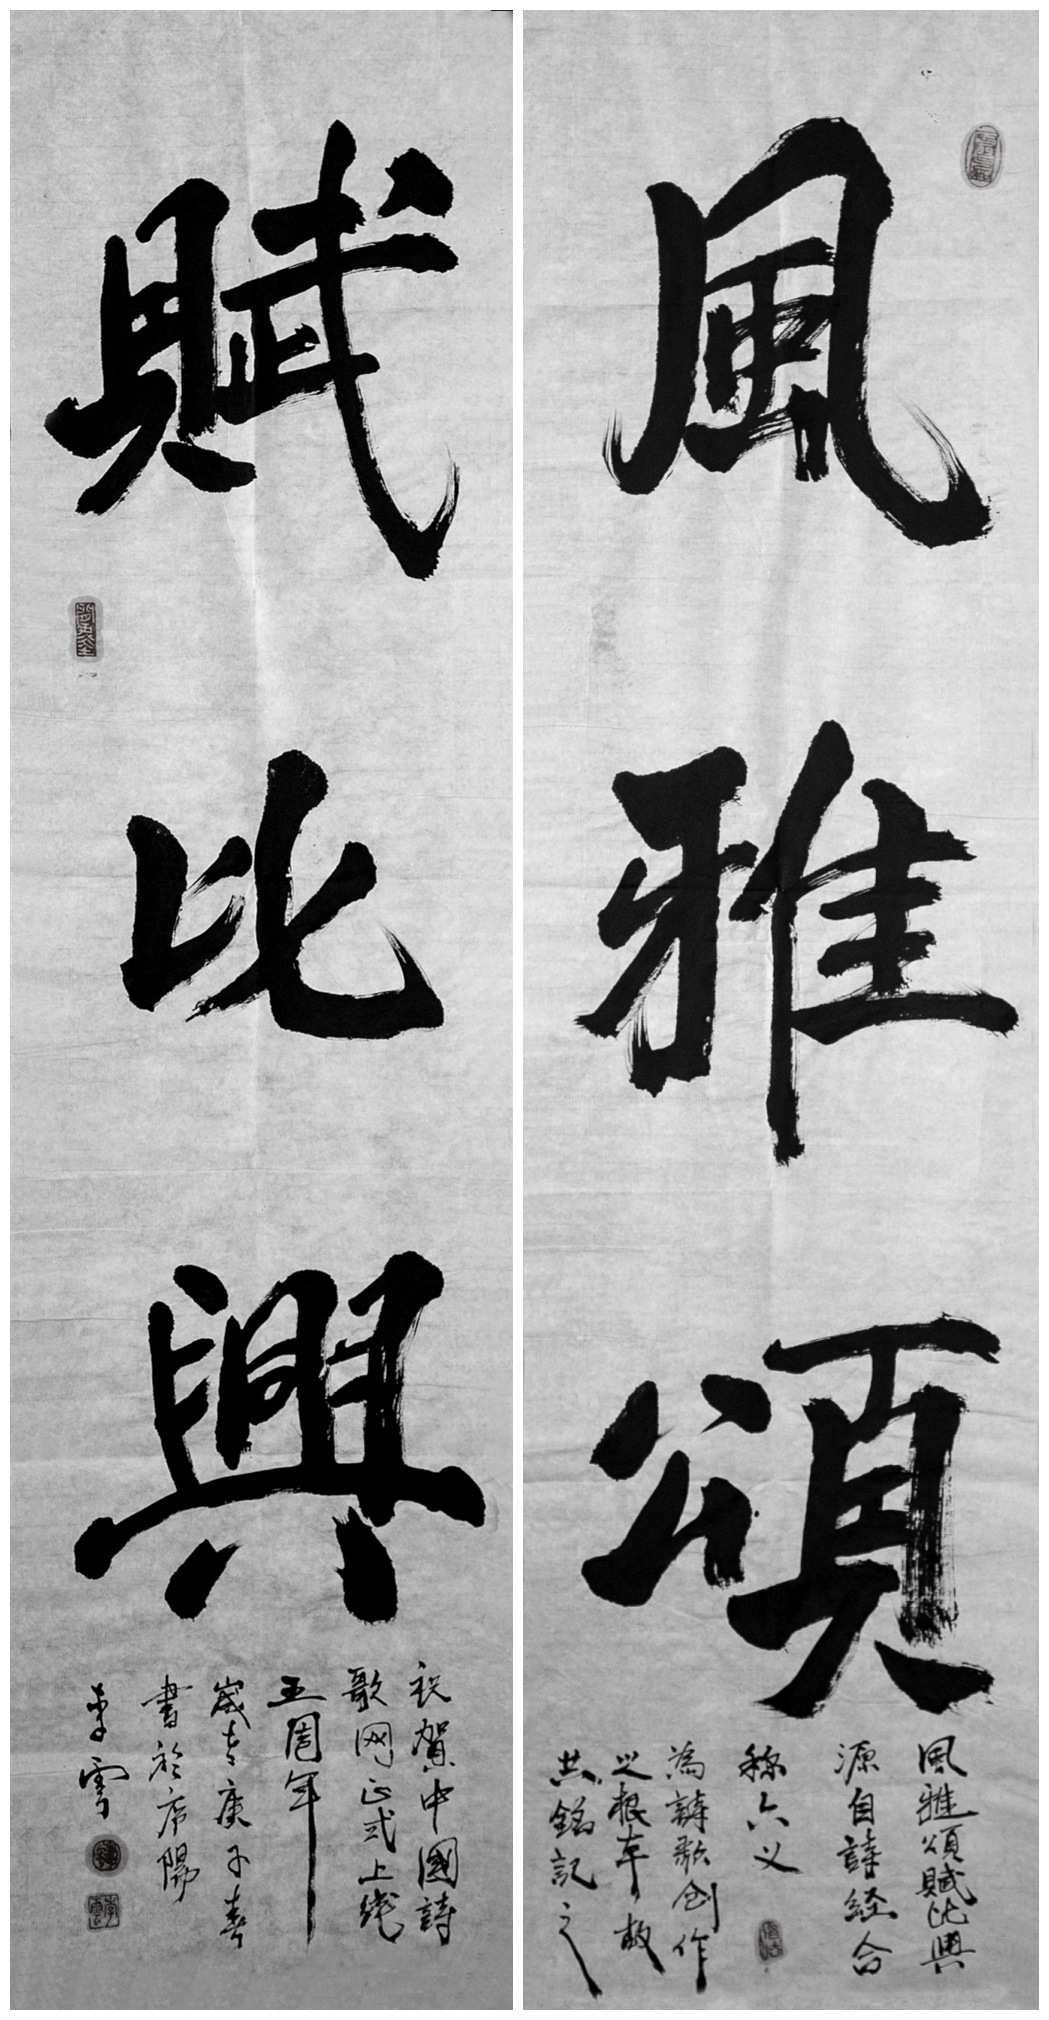 風雅頌
風雅頌賦比興
源自詩经合
稱六义
為詩歌创作
之根本故
共銘記之
賦比興
祝賀中國詩
歌网正式上线
五周年
歲在庚子春
書於
李雪